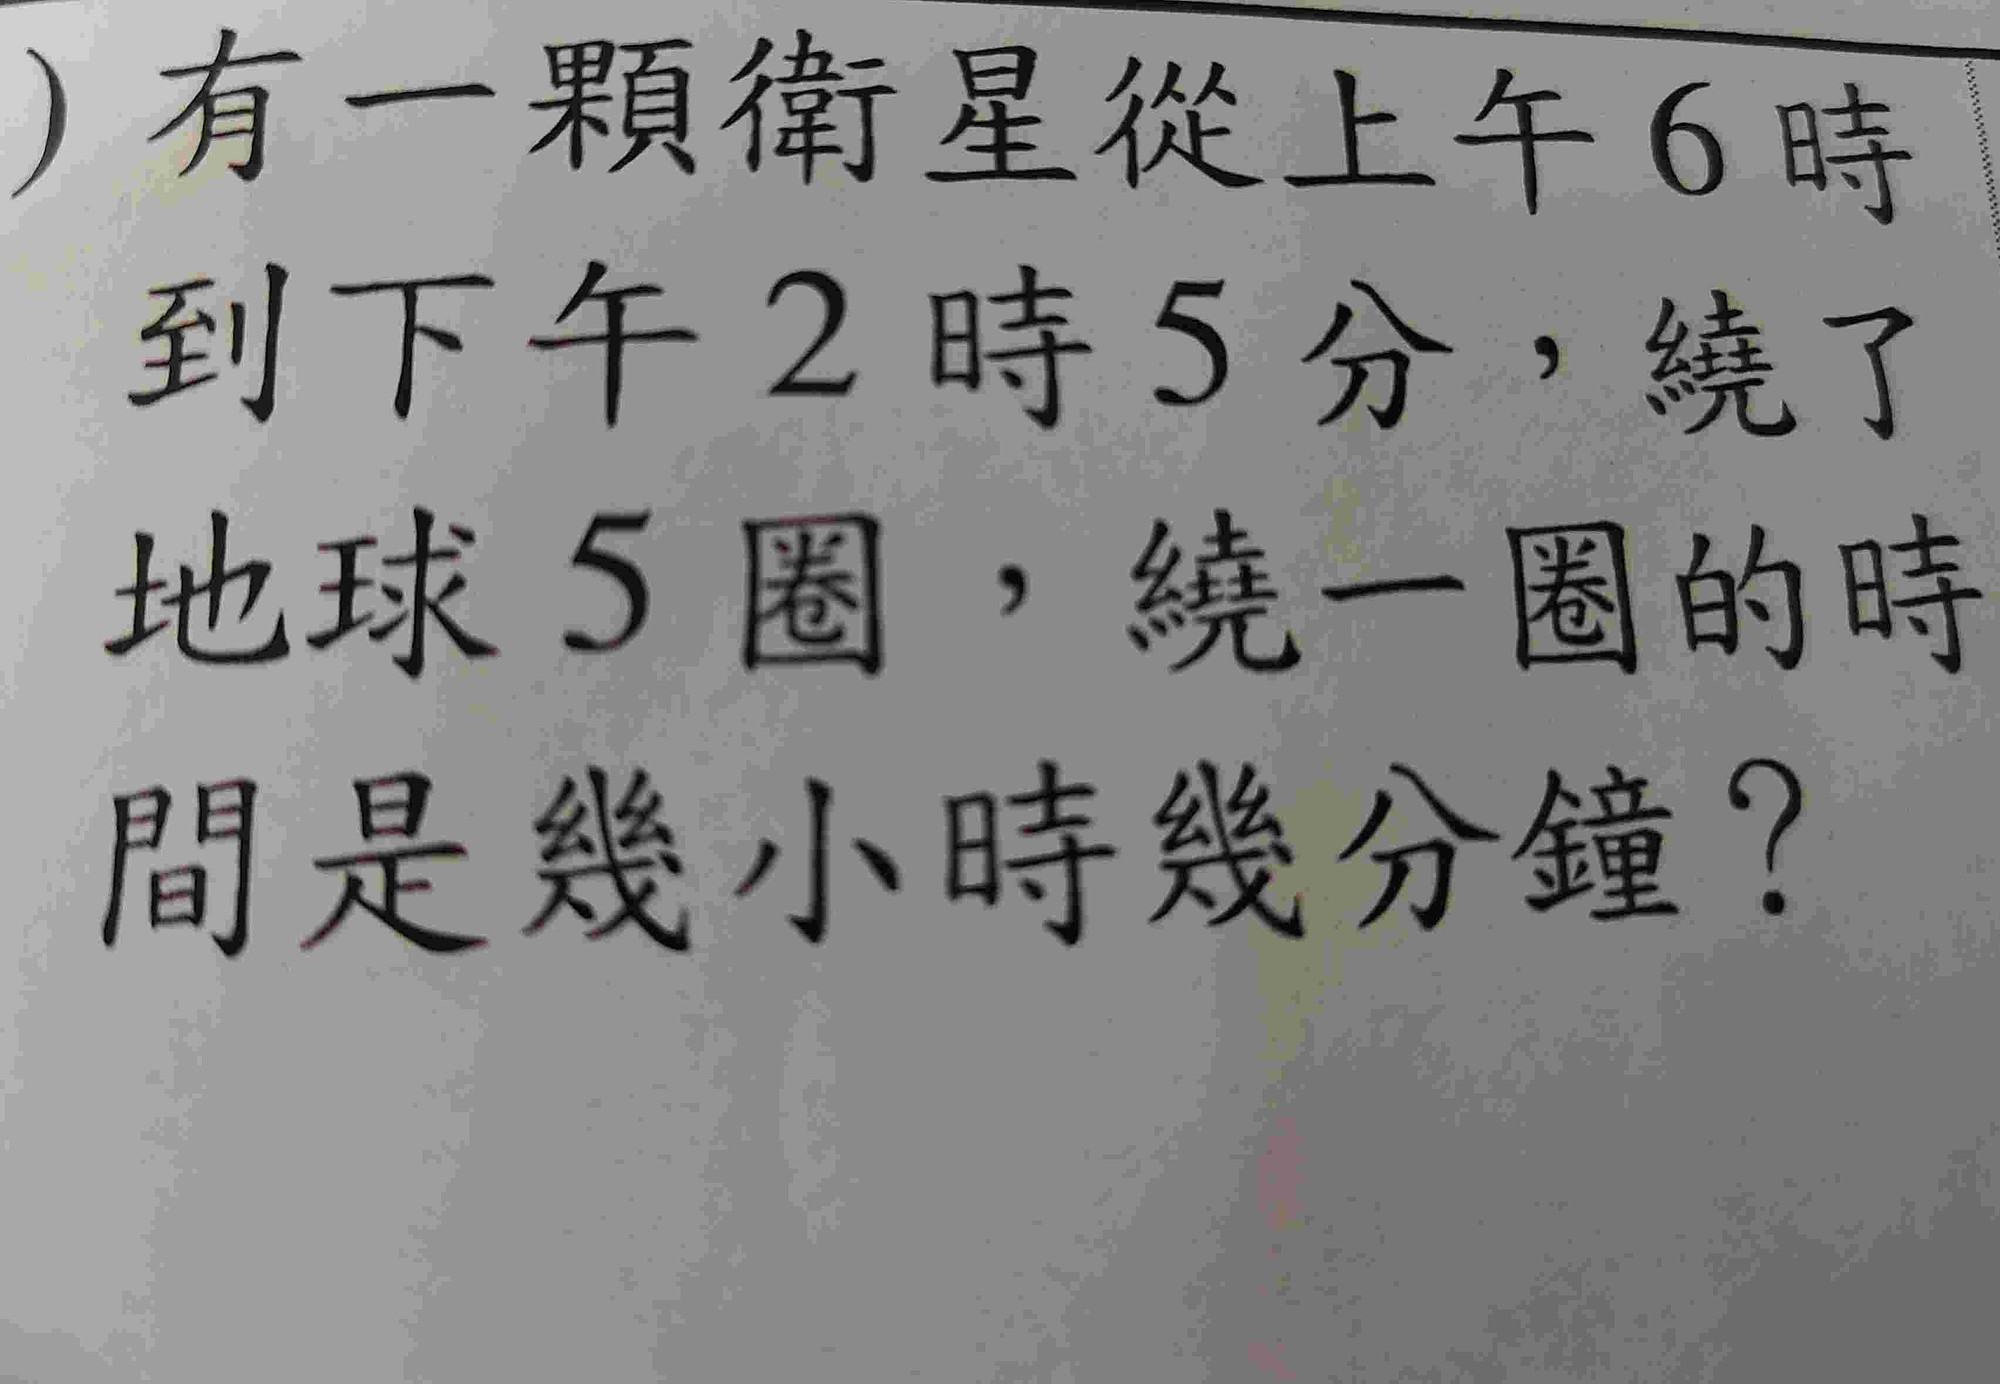 )有一顆衛星從上午6時
到下午2時5分，繞了
地球5圈，繞一圈的時
間是幾小時幾分鐘？